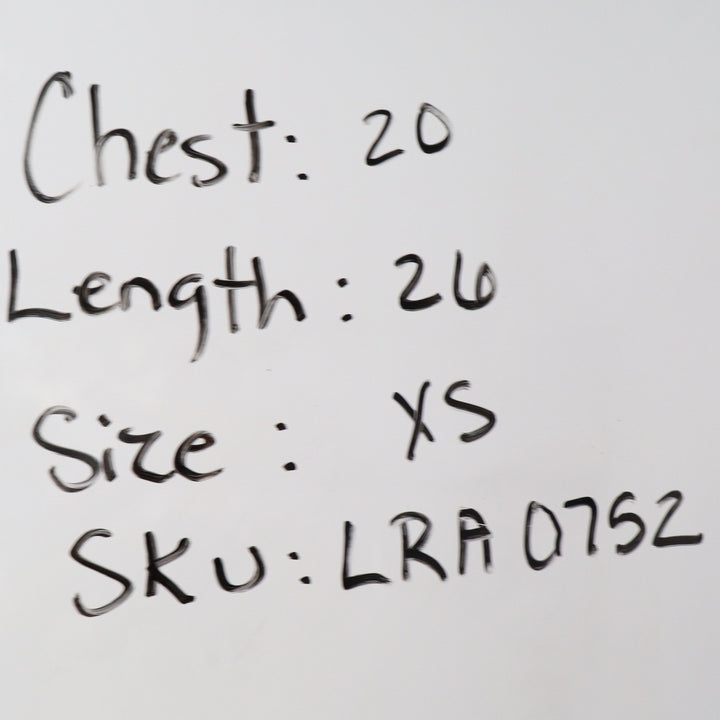 Chest: 20
Length: 26
Size: XS
SKU: LRA 0752